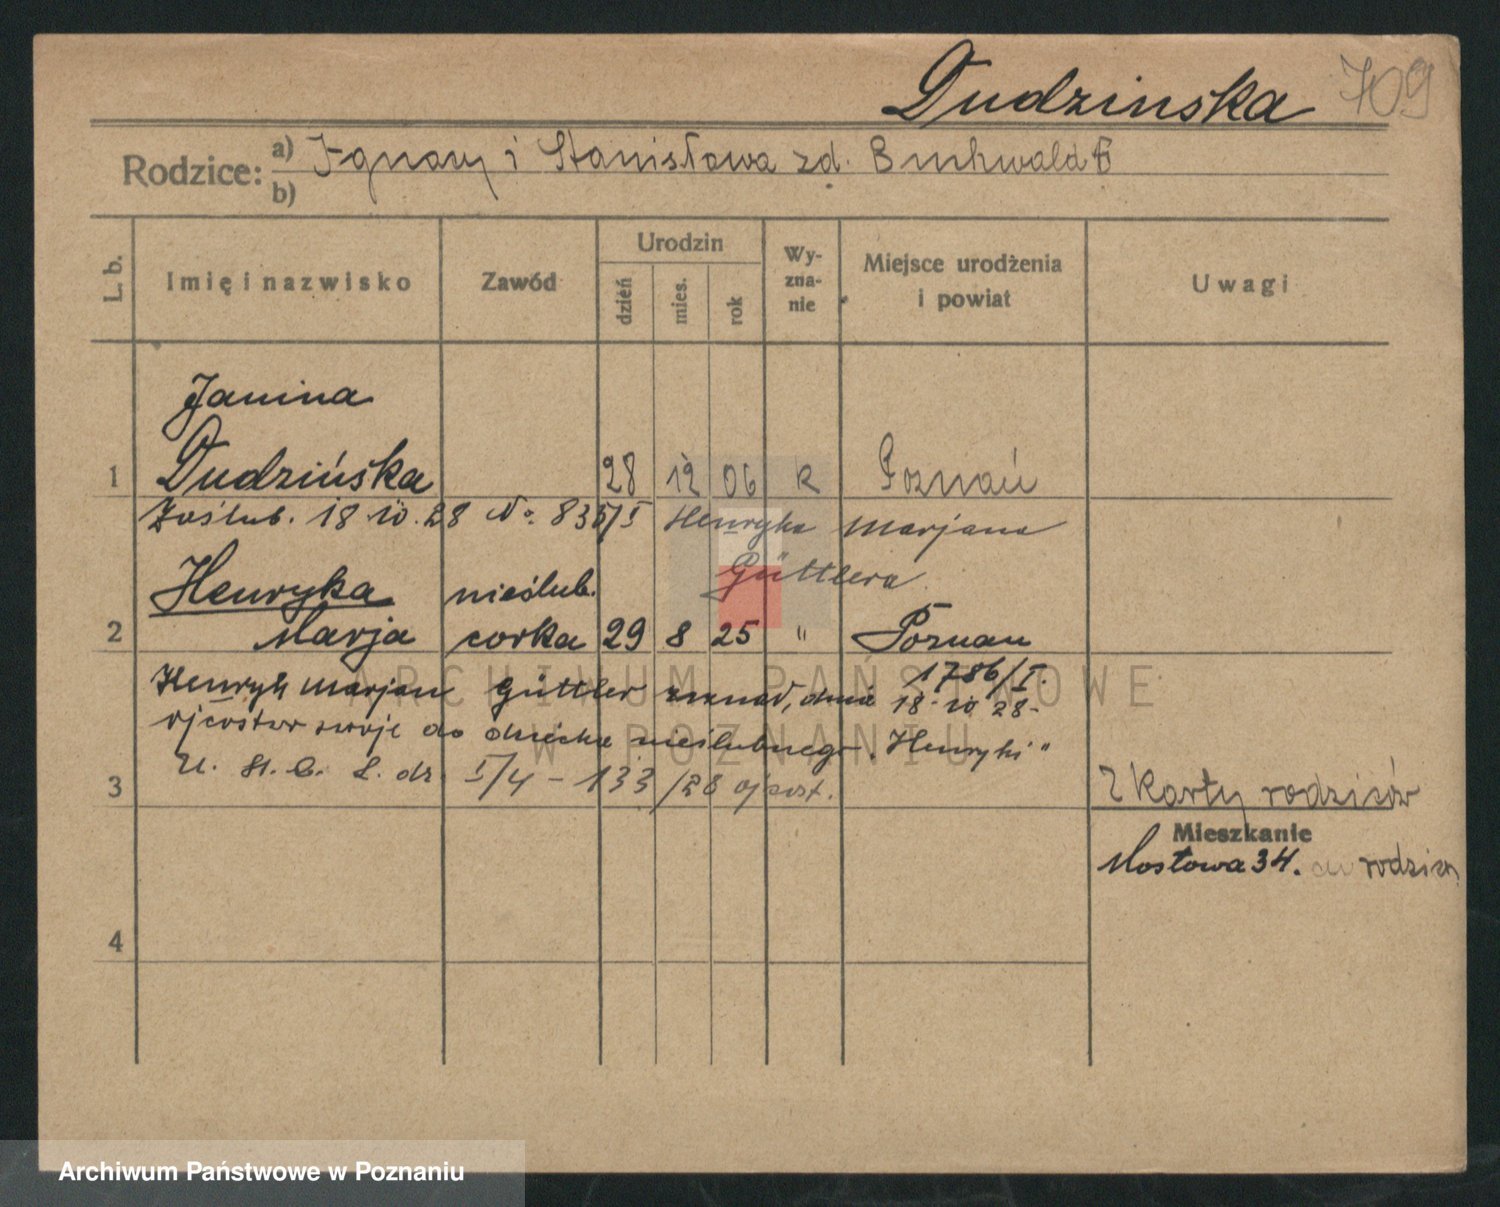 Dudzinska 709
Rodzice: a) Ignacy i Stanisława zd. Buchwald
b)
L. b.
Imię i nazwisko
Zawód
Urodzin
dzień
mies.
rok
Wy-
zna-
nie
Miejsce urodżenia
i powiat
Uwagi
Janina
1 Dudzińska 28 12 06 k Poznań
Zaślub. 18 10. 28 No. 835/I Henryka Marjana
Güttlera
Henryka nieślub.
2 Marja corka 29 8 25 " Poznan
1786/I.
Henryk Marjan Güttler uznał, dnia 18. 10 28-
ojcostwo swoje do dziecka nieślubnego „Henryki"
3 U. St. C. L. dz. I/4 - 133/28 ojcost.
Z Karty rodziców
Mieszkanie
Mostowa 34. rodzic.
4
ARCHIWUM PAŃSTWOWE
W POZNANIU
Archiwum Państwowe w Poznaniu